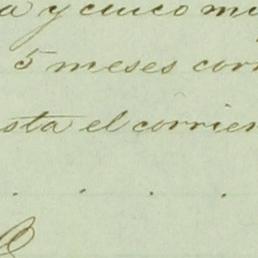 a y cinco m
5 meses corr
sta el corrien